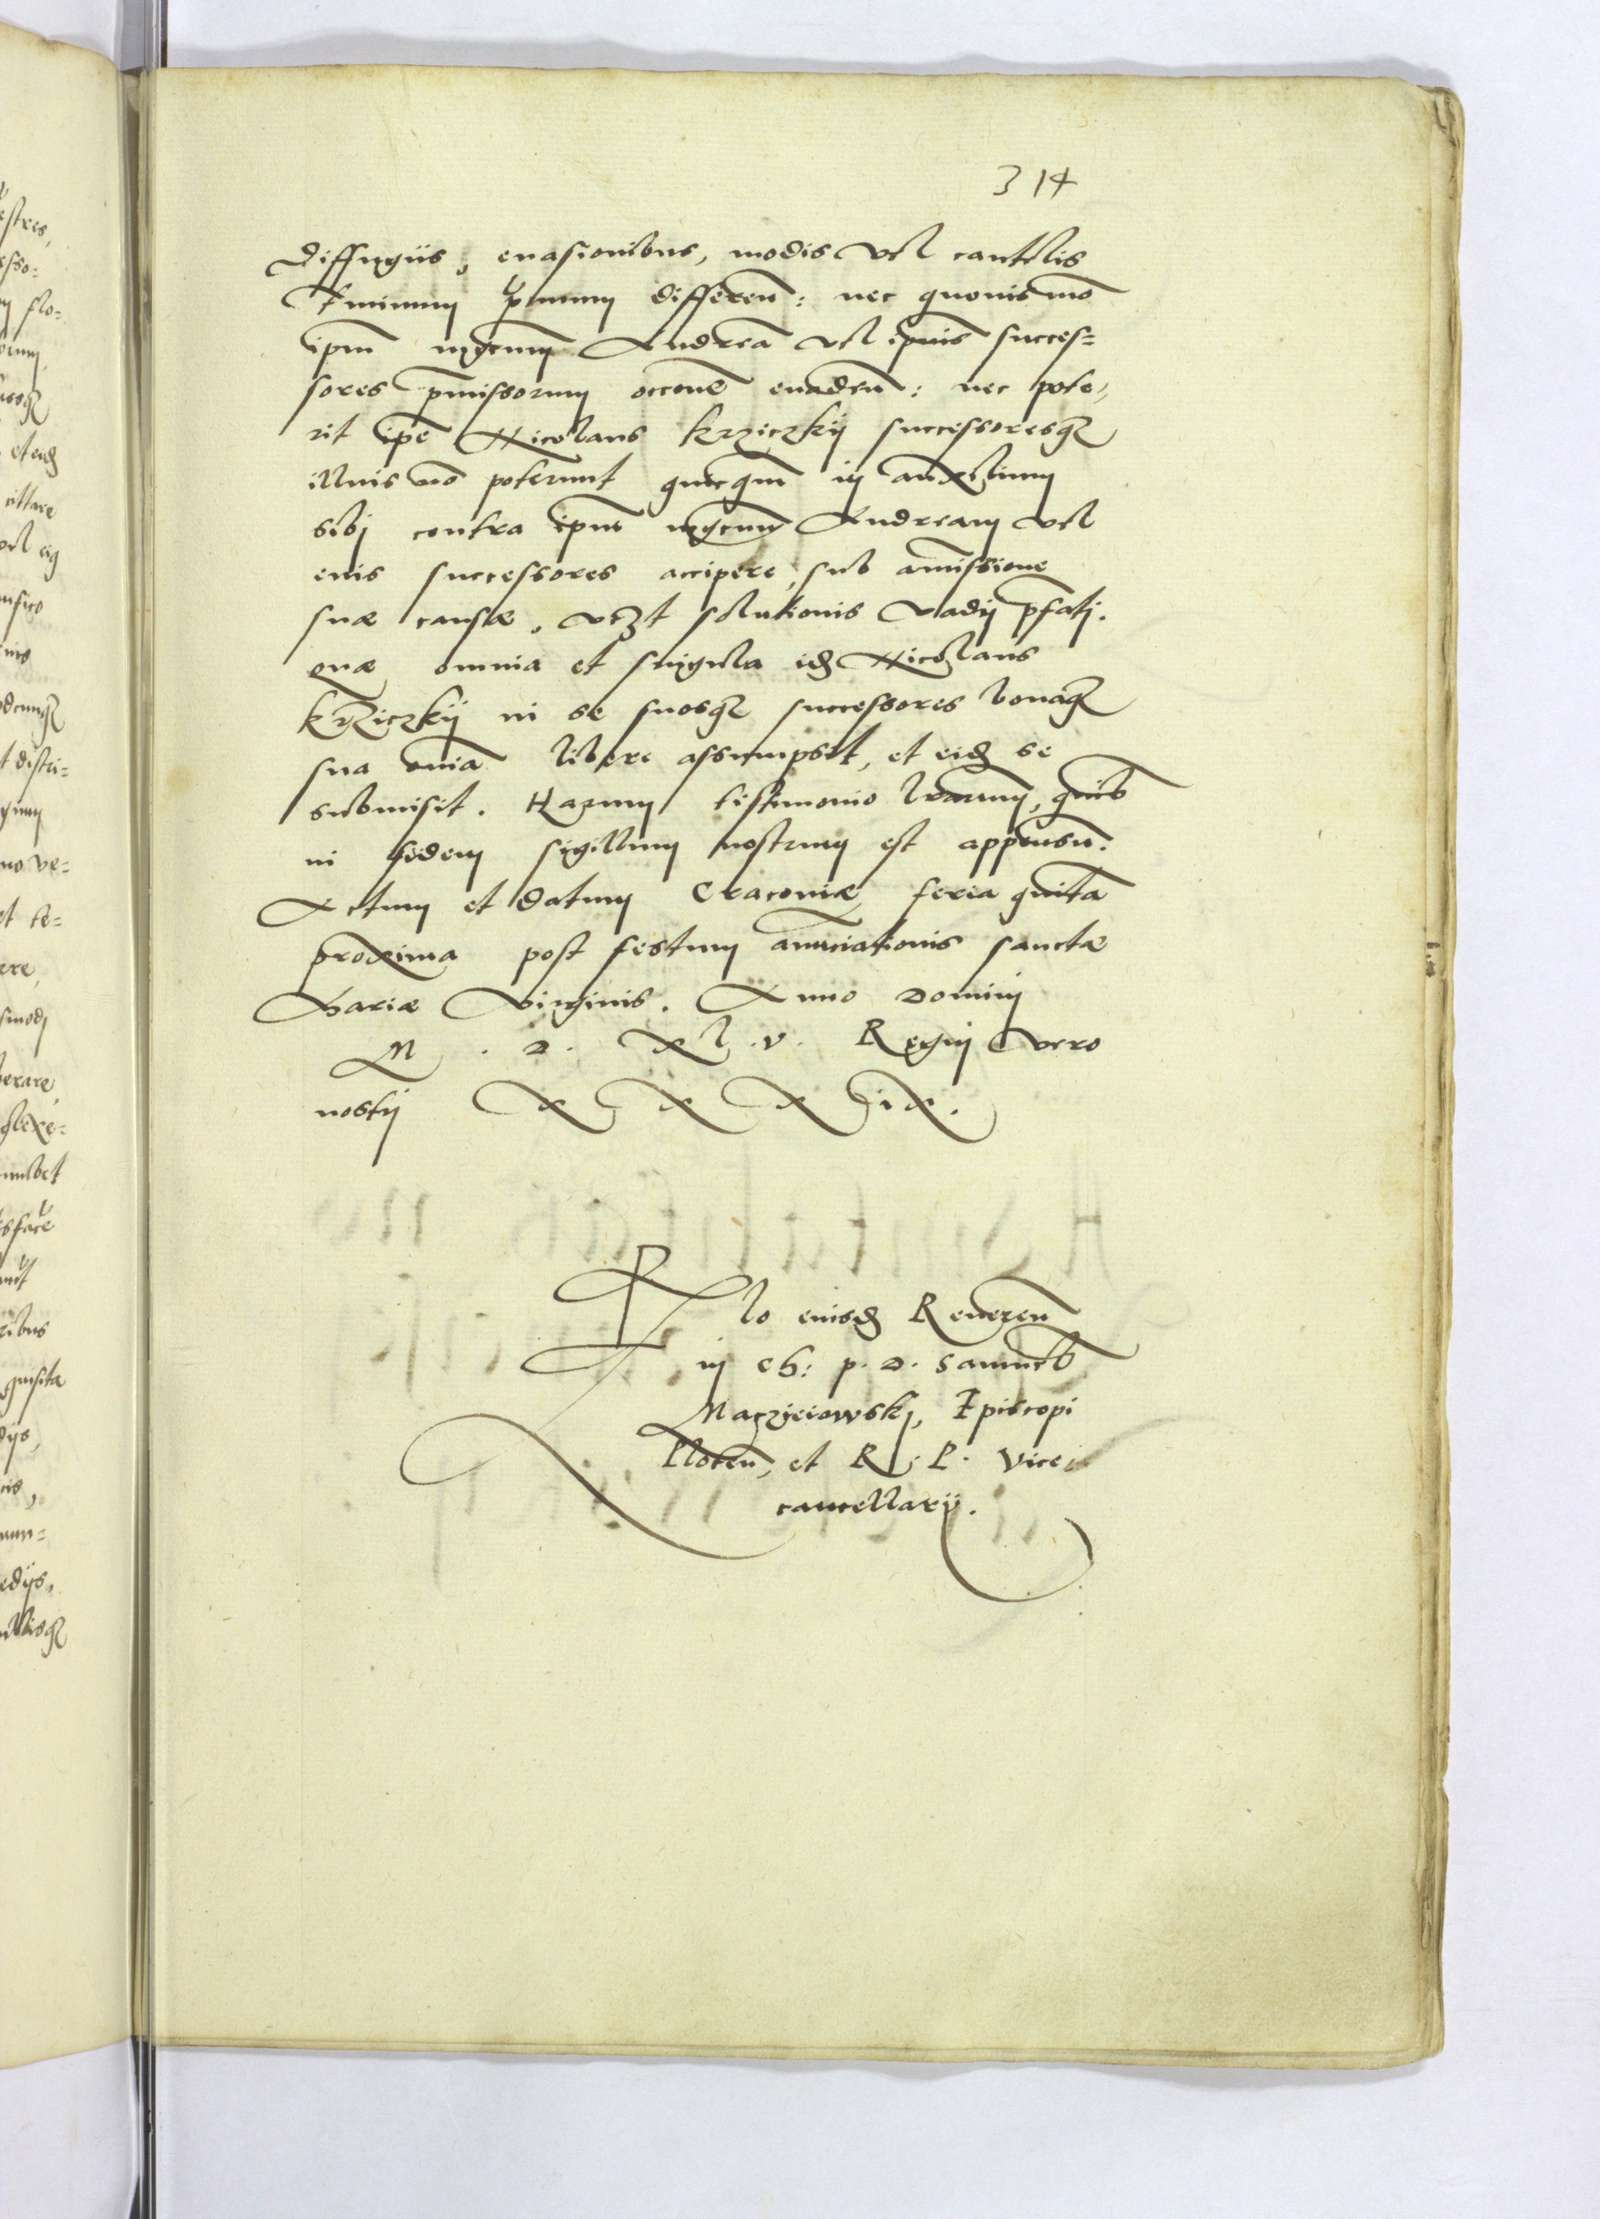 314
diffugiis, euasionibus, modis vel cautelis
t̃minum p̃mum differeñ: nec quouis mõ
ipm̃ mgcum̃ Andreã vel ipius̃ succes=
sores p̃missorum occone͂ euadeñ: nec pote,
rit ip̃e Nicolaus Krziczkij successoresq3
illius nõ poterunt quicqm̃ in auxilium
sibj contra ipm̃ mgcum̃ Andream vel
eius successores accipere, sub amissione
suæ causæ, vz̃t solutionis vadij p̃fatj.
quæ omnia et singula id̃ Nicolaus
Krziczkij in se suosq3 successores bonaq3
sua om̃ia libere assumpsit, et eid̃ se
submisit. Harum testimonio lr̃arum, quib̃
in fidem sigillum nostrum est appensũ.
Actum et datum Cracoviæ feria quĩta
proxima post festum anũciationis sanctæ
Mariæ Virginis. Anno Dominj
M . D . XL . V . Regnj vero
nostrj XXXIX.
Rlo eiusd̃ Reueren
in Ch: p. D. Samuel̃
Maczieiowskj, Episcopi
Plocen͂, et R. P. Vice
cancellarij.